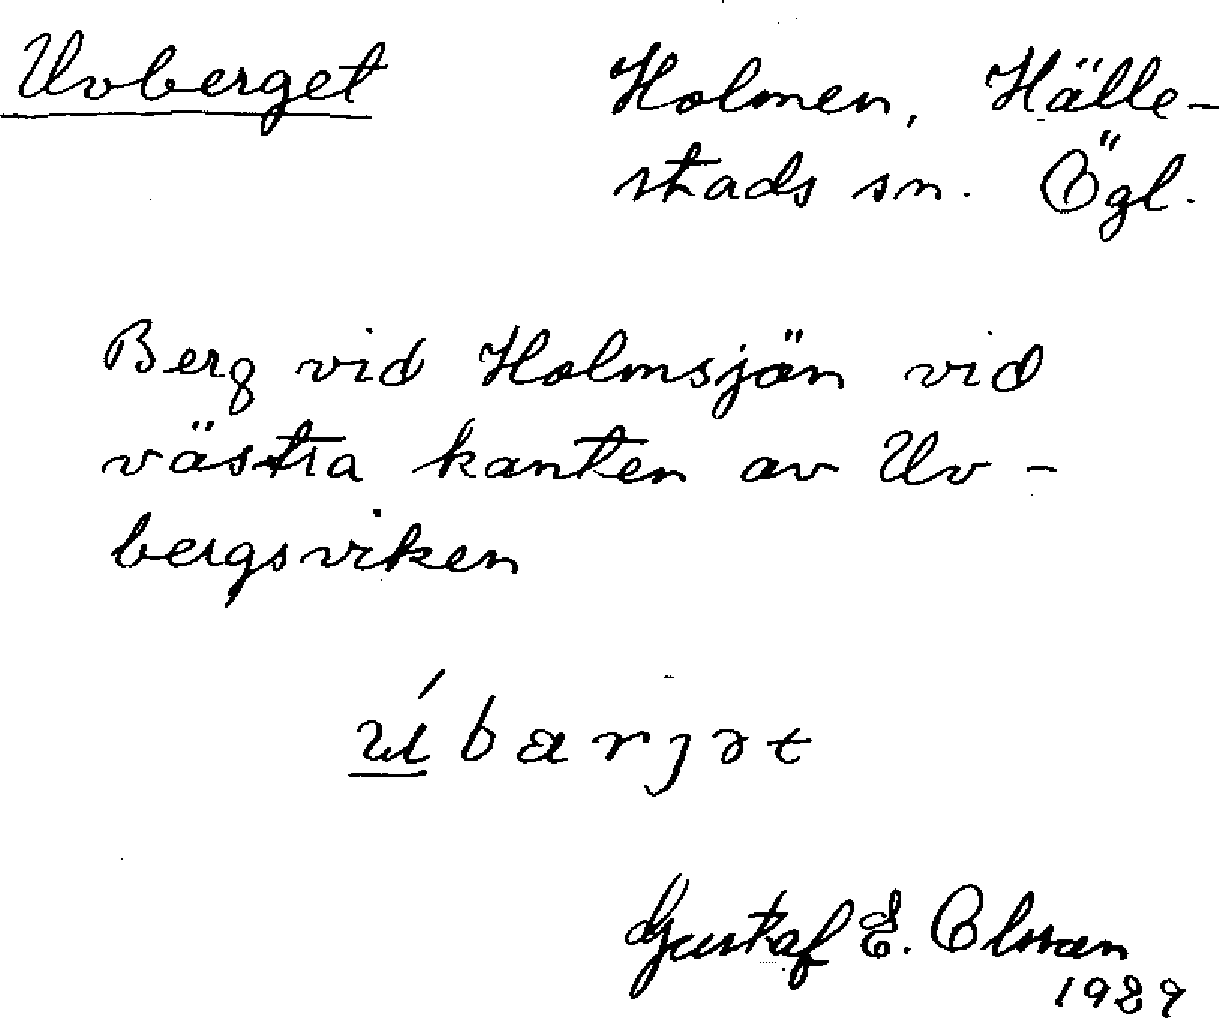 Uvberget Holmen, Hälle-
stads sn. Ögl.
Berg vid Holmsjön vid
västra kanten av Uv-
bergsviken
úbarjət
Gustaf E. Olsson
1929